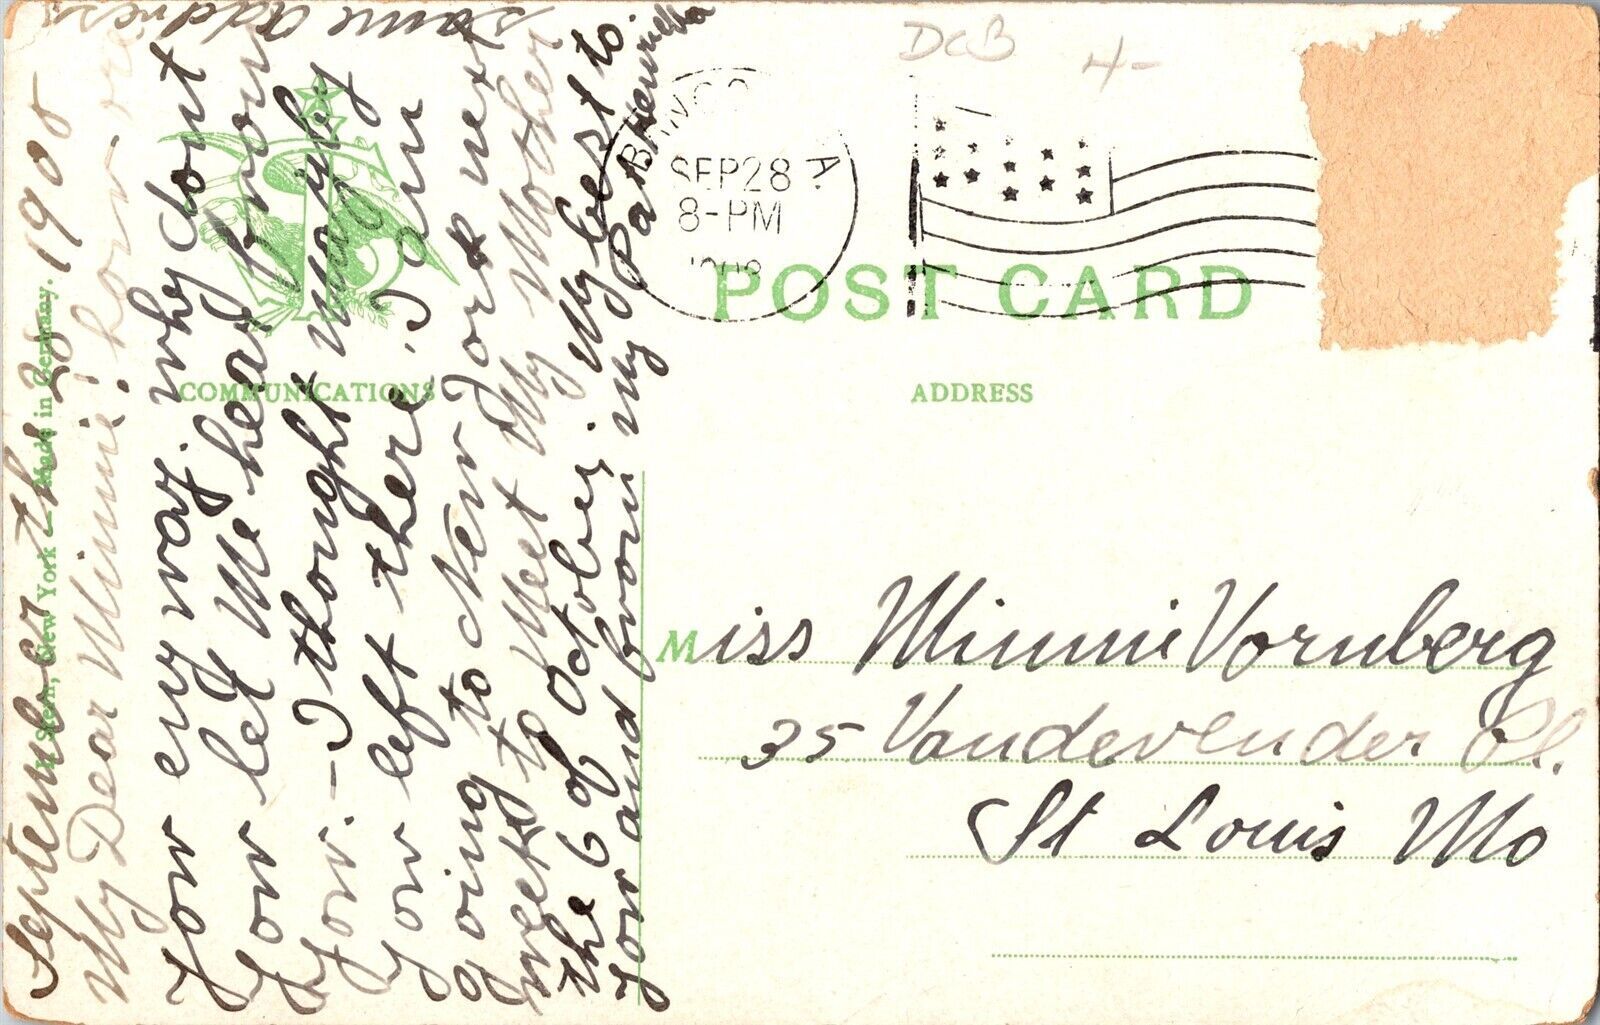 September the 28 1908
My Dear Minnie! how are
You eny way. why dont
You let Me hear from
You. – I thought mayby
You left there. I am
going to New York next
week to Meet My Mother
the 6 of October. My best to
You and from my Pal Henrietta
same address
H. Stern, New York — Made in Germany.
COMMUNICATIONS
DCB 4-
SEP 28
8-PM
1908
POST CARD
ADDRESS
Miss Minnie Vornberg
35 Vandevender Pl.
St Louis Mo